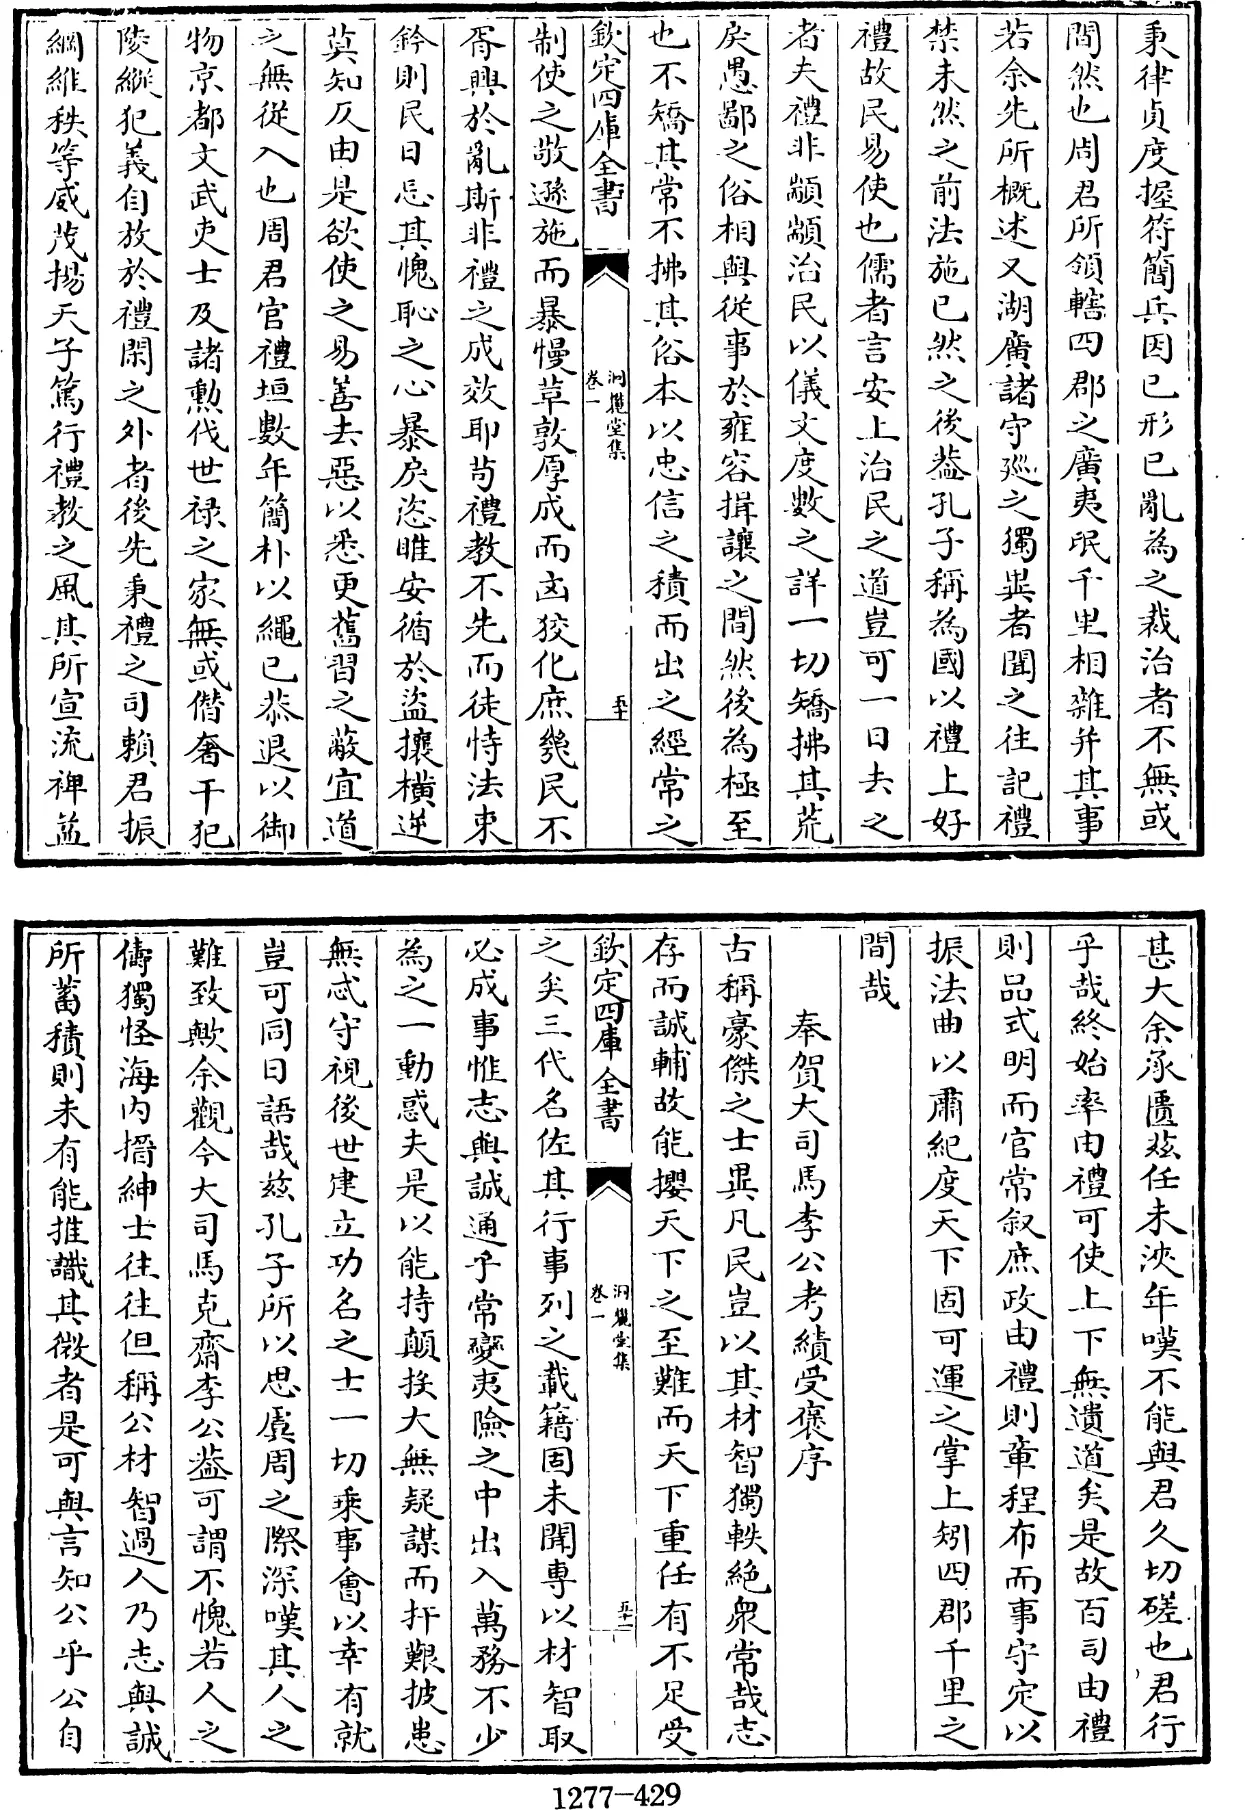 秉律貞度握符簡兵因已形已亂為之裁治者不無或
間然也周君所領轄四郡之廣夷氓千里相雜并其事
若余先所概述又湖廣諸守廵之獨異者聞之往記禮
禁未然之前法施已然之後葢孔子稱為國以禮上好
禮故民易使也儒者言安上治民之道豈可一日去之
者夫禮非顓顓治民以儀文度數之詳一切矯拂其荒
戾愚鄙之俗相與從事於雍容揖讓之間然後為極至
也不矯其常不拂其俗本以忠信之積而出之經常之
欽定四庫全書
洞麓堂集
卷一
五十
制使之敬遜施而暴慢革敦厚成而凶狡化庶幾民不
胥興於亂斯非禮之成效耶茍禮教不先而徒恃法束
鈐則民日忘其愧恥之心暴戾恣睢安循於盜攘橫逆
莫知仄由是欲使之易善去惡以悉更舊習之蔽宜道
之無從入也周君官禮垣數年簡朴以繩已恭退以御
物京都文武吏士及諸勲伐世禄之家無或僭奢干犯
陵縱犯義自放於禮閑之外者後先秉禮之司賴君振
綱維秩等威茂揚天子篤行禮教之風其所宣流裨益
甚大余承匱兹任未浹年嘆不能與君久切磋也君行
乎哉終始率由禮可使上下無遺道矣是故百司由禮
則品式明而官常叙庶政由禮則章程布而事守定以
振法曲以肅紀度天下固可運之掌上矧四郡千里之
間哉
奉賀大司馬李公考績受褒序
古稱豪傑之士異凡民豈以其材智獨軼絶衆常哉志
存而誠輔故能攖天下之至難而天下重任有不足受
欽定四庫全書
洞麓堂集
卷一
五十一
之矣三代名佐其行事列之載籍固未聞專以材智取
必成事惟志與誠通乎常變夷險之中出入萬務不少
為之一動惑夫是以能持顛投大無疑謀而扞艱披患
無忒守視後世建立功名之士一切乘事會以幸有就
豈可同日語哉兹孔子所以思虞周之際深嘆其人之
難致歟余觀今大司馬克齋李公葢可謂不愧若人之
儔獨怪海内搢紳士往往但稱公材智過人乃志與誠
所蓄積則未有能推識其微者是可與言知公乎公自
1277-429